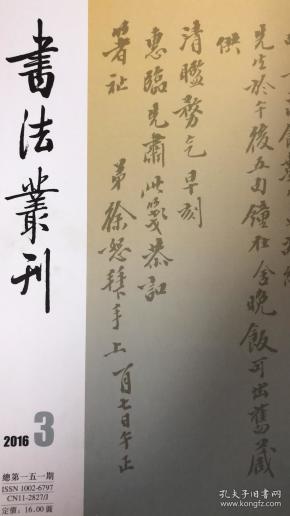 書法叢刊
2016 3
總第一五一期
ISSN 1002-6797
CN11-2827/J
定價：16.00圓
供
先生於午後五句鐘在舍晚飯可出舊藏
清鑒務乞早刻
惠臨尤肅此箋恭訂
箸祉 弟徐恕拜手上 一月七日午正
孔夫子旧书网